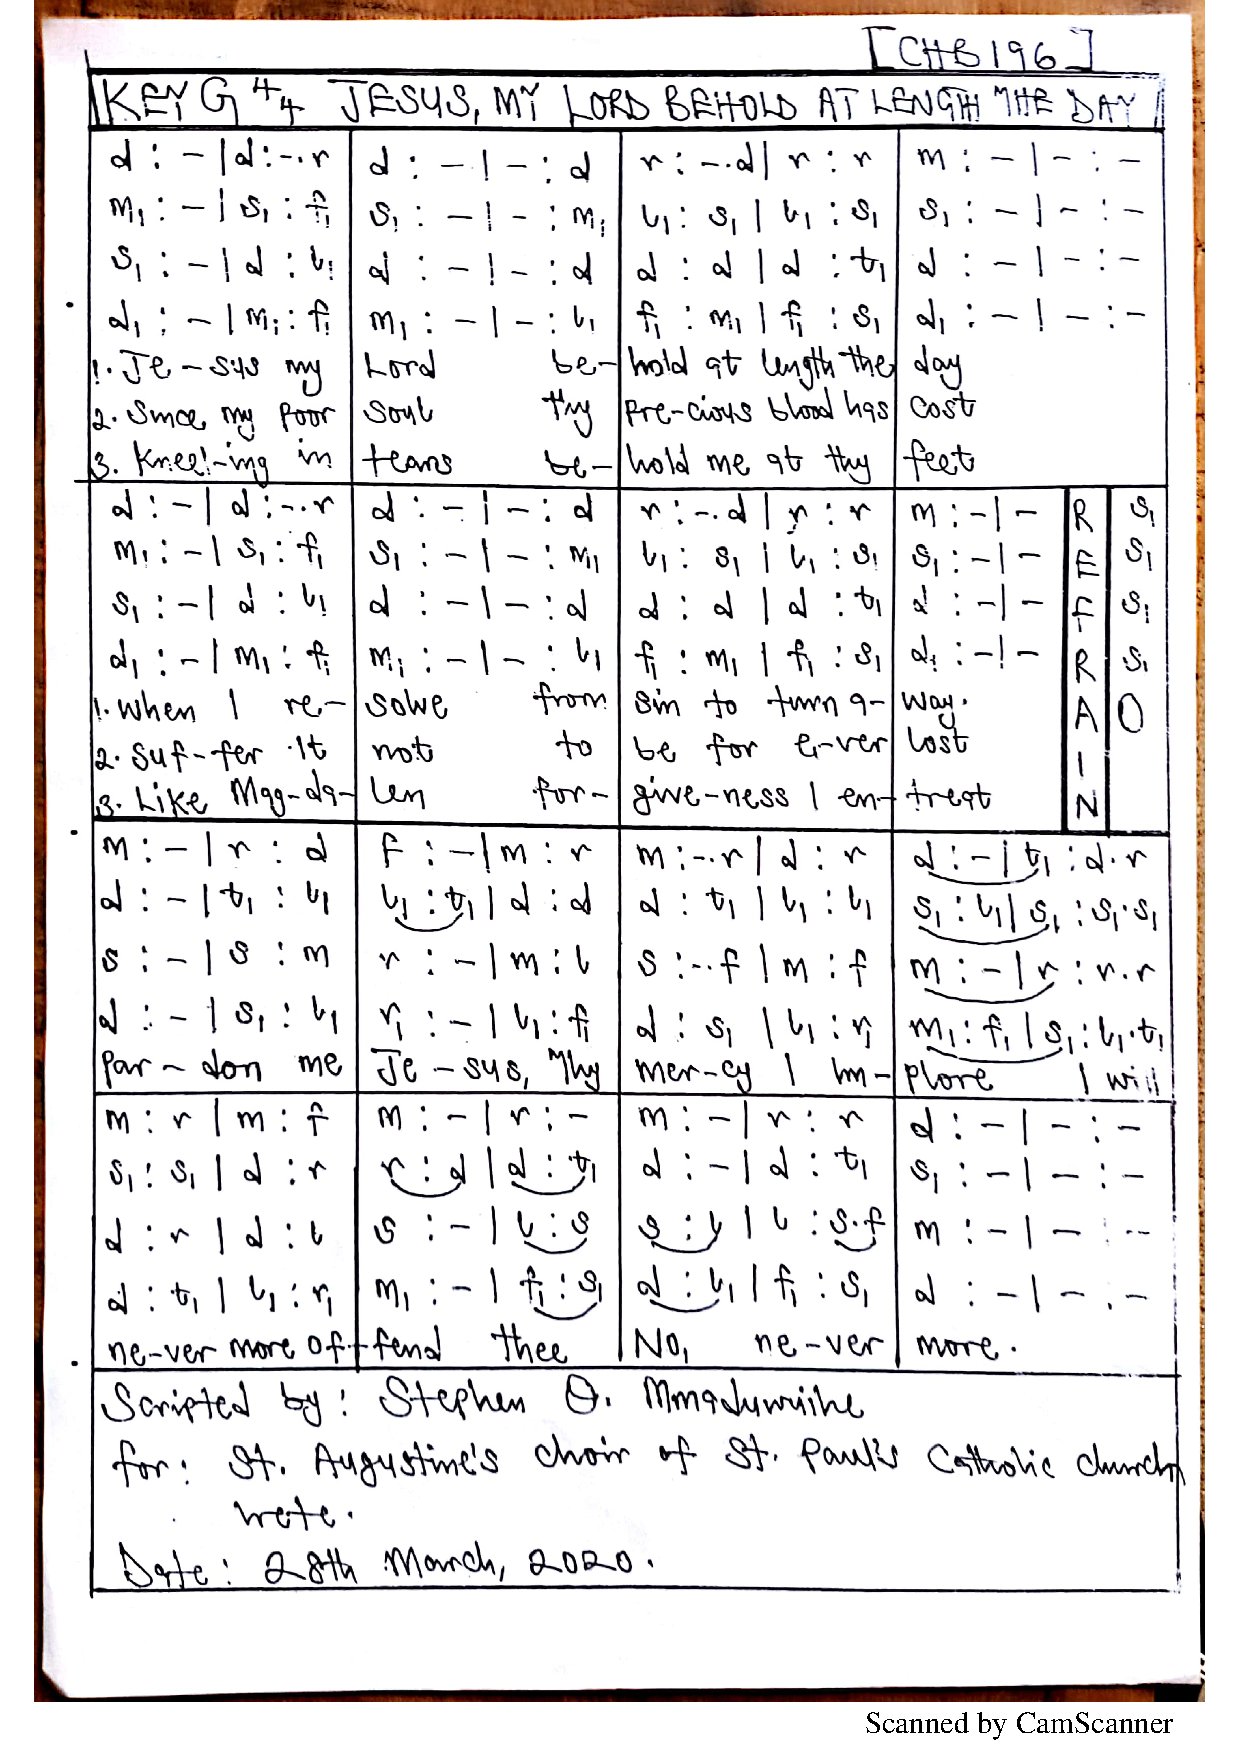 [CHB196]
KEY G 4/4 JESUS, MY LORD BEHOLD AT LENGTH THE DAY
d : – | d : –. r   d : – | – : d   r : –. d | r : r   m : – | – : –
m₁ : – | s₁ : f₁   s₁ : – | – : m₁   l₁ : s₁ | l₁ : s₁   s₁ : – | – : –
s₁ : – | d : l₁   d : – | – : d   d : d | d : t₁   d : – | – : –
d₁ : – | m₁ : f₁   m₁ : – | – : l₁   f₁ : m₁ | f₁ : s₁   d₁ : – | – : –
1. Je – sus my Lord be– hold at length the day
2. Since my poor soul thy pre–cious blood has cost
3. Kneel–ing in tears be– hold me at thy feet
d : – | d : –. r   d : – | – : d   r : –. d | r : r   m : – | –   s₁
m₁ : – | s₁ : f₁   s₁ : – | – : m₁   l₁ : s₁ | l₁ : s₁   s₁ : – | –   s₁
s₁ : – | d : l₁   d : – | – : d   d : d | d : t₁   d : – | –   s₁
d₁ : – | m₁ : f₁   m₁ : – | – : l₁   f₁ : m₁ | f₁ : s₁   d₁ : – | –   s₁
REFRAIN
1. When I re– solve from sin to turn a– way. O
2. Suf–fer it not to be for e–ver lost
3. Like Mag–da– len for– give–ness I en– treat
m : – | r : d   f : – | m : r   m : –. r | d : r   d : – | t₁ : d . r
d : – | t₁ : l₁   l₁ : t₁ | d : d   d : t₁ | l₁ : l₁   s₁ : l₁ | s₁ : s₁ . s₁
s : – | s : m   r : – | m : l   s : –. f | m : f   m : – | r : r . r
d : – | s₁ : l₁   r₁ : – | l₁ : f₁   d : s₁ | l₁ : r₁   m₁ : f₁ | s₁ : l₁ . t₁
Par – don me Je – sus, Thy mer–cy I im– plore I will
m : r | m : f   m : – | r : –   m : – | r : r   d : – | – : –
s₁ : s₁ | d : r   r : d | d : t₁   d : – | d : t₁   s₁ : – | – : –
d : r | d : l   s : – | l : s   s : l | l : s . f   m : – | – : –
d : t₁ | l₁ : r₁   m₁ : – | f₁ : s₁   d : l₁ | f₁ : s₁   d : – | – : –
ne–ver more of– fend thee No, ne–ver more.
Scripted by : Stephen O. Mmaduwuike
for : St. Augustine's choir of St. Paul's Catholic church
Date : 28th March, 2020.
Scanned by CamScanner